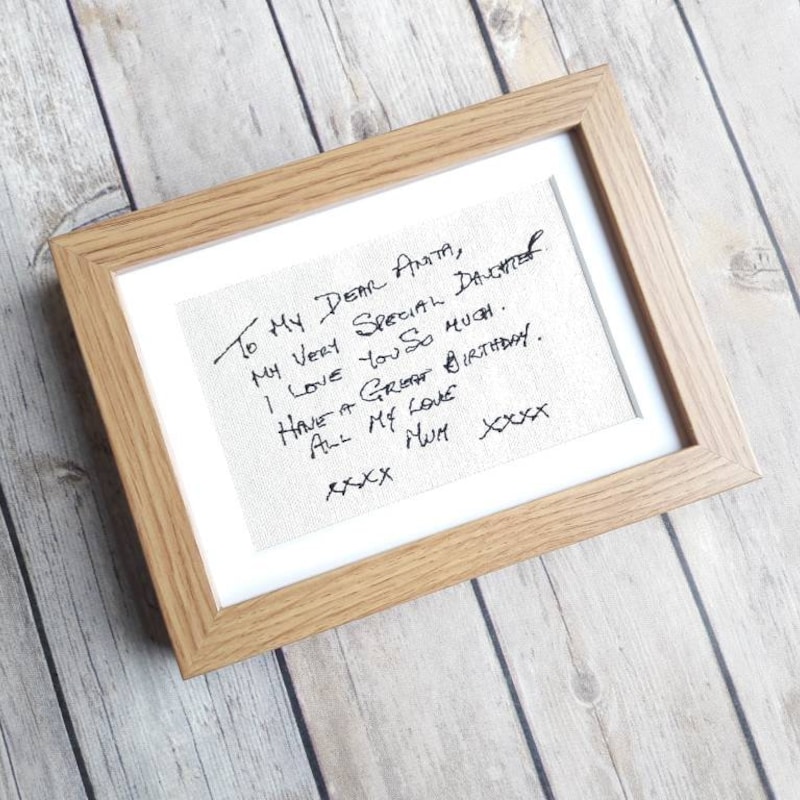 To My Dear Anita,
My Very Special Daughter.
I Love You So Much.
Have a Great Birthday.
All My Love
Mum xxxx
xxxx